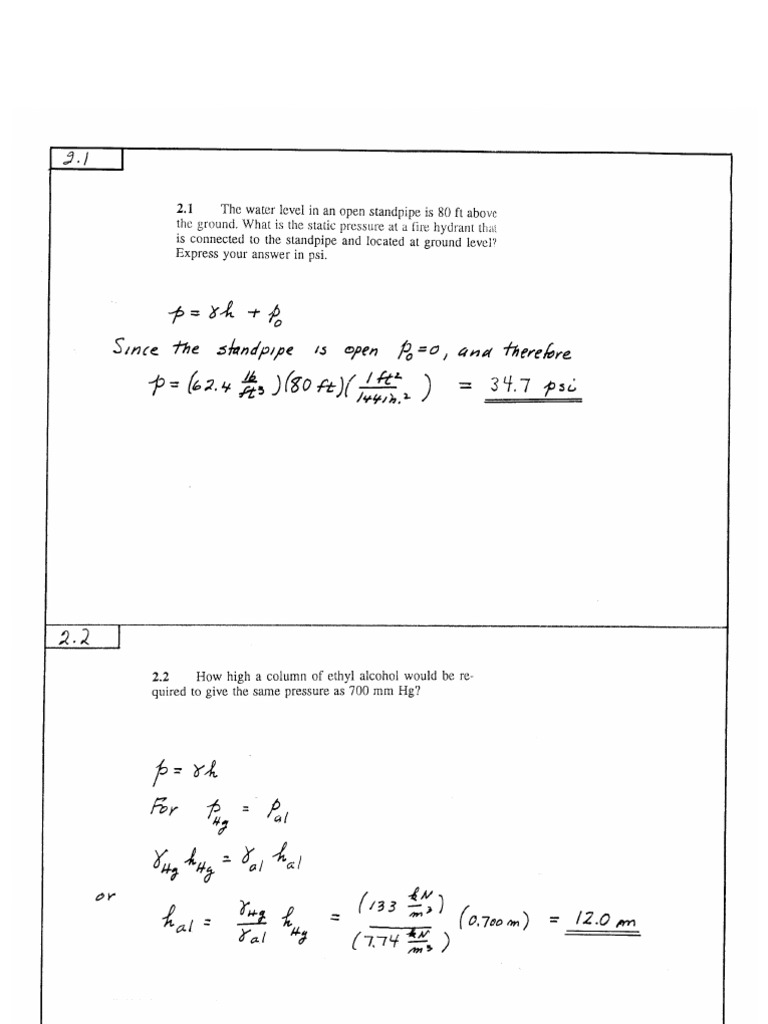 2.1
2.1 The water level in an open standpipe is 80 ft above
the ground. What is the static pressure at a fire hydrant that
is connected to the standpipe and located at ground level?
Express your answer in psi.
p = γh + p₀
Since the standpipe is open p₀ = 0, and therefore
p = (62.4 lb/ft³)(80 ft)(1 ft²/144 in.²) = 34.7 psi
2.2
2.2 How high a column of ethyl alcohol would be re-
quired to give the same pressure as 700 mm Hg?
p = γh
For p_Hg = p_al
γ_Hg h_Hg = γ_al h_al
or
h_al = γ_Hg/γ_al h_Hg = (133 kN/m³)/(7.74 kN/m³) (0.700 m) = 12.0 m